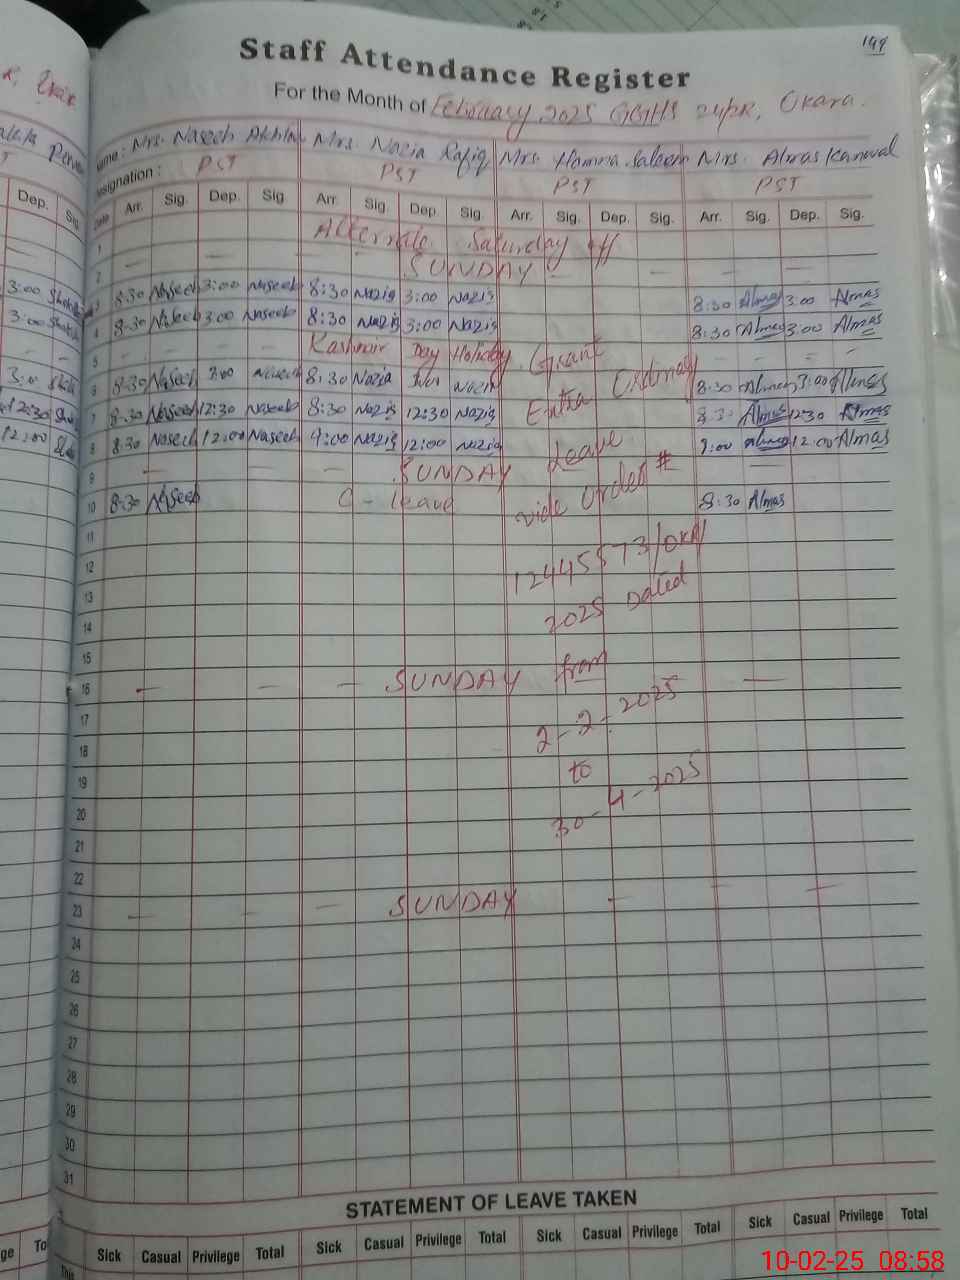 149
Staff Attendance Register
For the Month of February 2025 GGHS 24/2R, Okara.
Name : Mrs. Naseeb Akhtar Mrs. Nazia Rafiq Mrs. Homna Saleem Mrs. Almas Kanwal
Designation : PST PST PST PST
Date Arr. Sig. Dep. Sig Arr. Sig. Dep. Sig. Arr. Sig. Dep. Sig. Arr. Sig. Dep. Sig.
1 Alternate Saturday off
2 — — — — — SUNDAY — — — —
3 8:30 Naseeb 3:00 Naseeb 8:30 Nazia 3:00 Nazia 8:30 Almas 3:00 Almas
4 8:30 Naseeb 3:00 Naseeb 8:30 Nazia 3:00 Nazia 8:30 Almas 3:00 Almas
5 - - - - Kashmir Day Holiday Grant - - - -
6 8:30 Naseeb 3:00 Naseeb 8:30 Nazia Nazia Extra Ordinary 8:30 Almas 3:00 Almas
7 8:30 Naseeb 12:30 Naseeb 8:30 Nazia 12:30 Nazia 8:30 Almas 12:30 Almas
8 8:30 Naseeb 12:00 Naseeb 9:00 Nazia 12:00 Nazia Leave 9:00 Almas 12:00 Almas
9 — — — — SUNDAY
10 8:30 Naseeb C - leave vide Order # 8:30 Almas
11
12 12445573/OKR/
13 2025 Dated
14
15
16 — — — SUNDAY from —
17 2-2-2025
18
19 to
20 30-4-2025
21
22
23 — — — SUNDAY — — —
24
25
26
27
28
29
30
31
STATEMENT OF LEAVE TAKEN
Sick Casual Privilege Total Sick Casual Privilege Total Sick Casual Privilege Total Sick Casual Privilege Total
This
10-02-25 08:58
Dep. Sig.
3:00
3:00
12:30
12:00